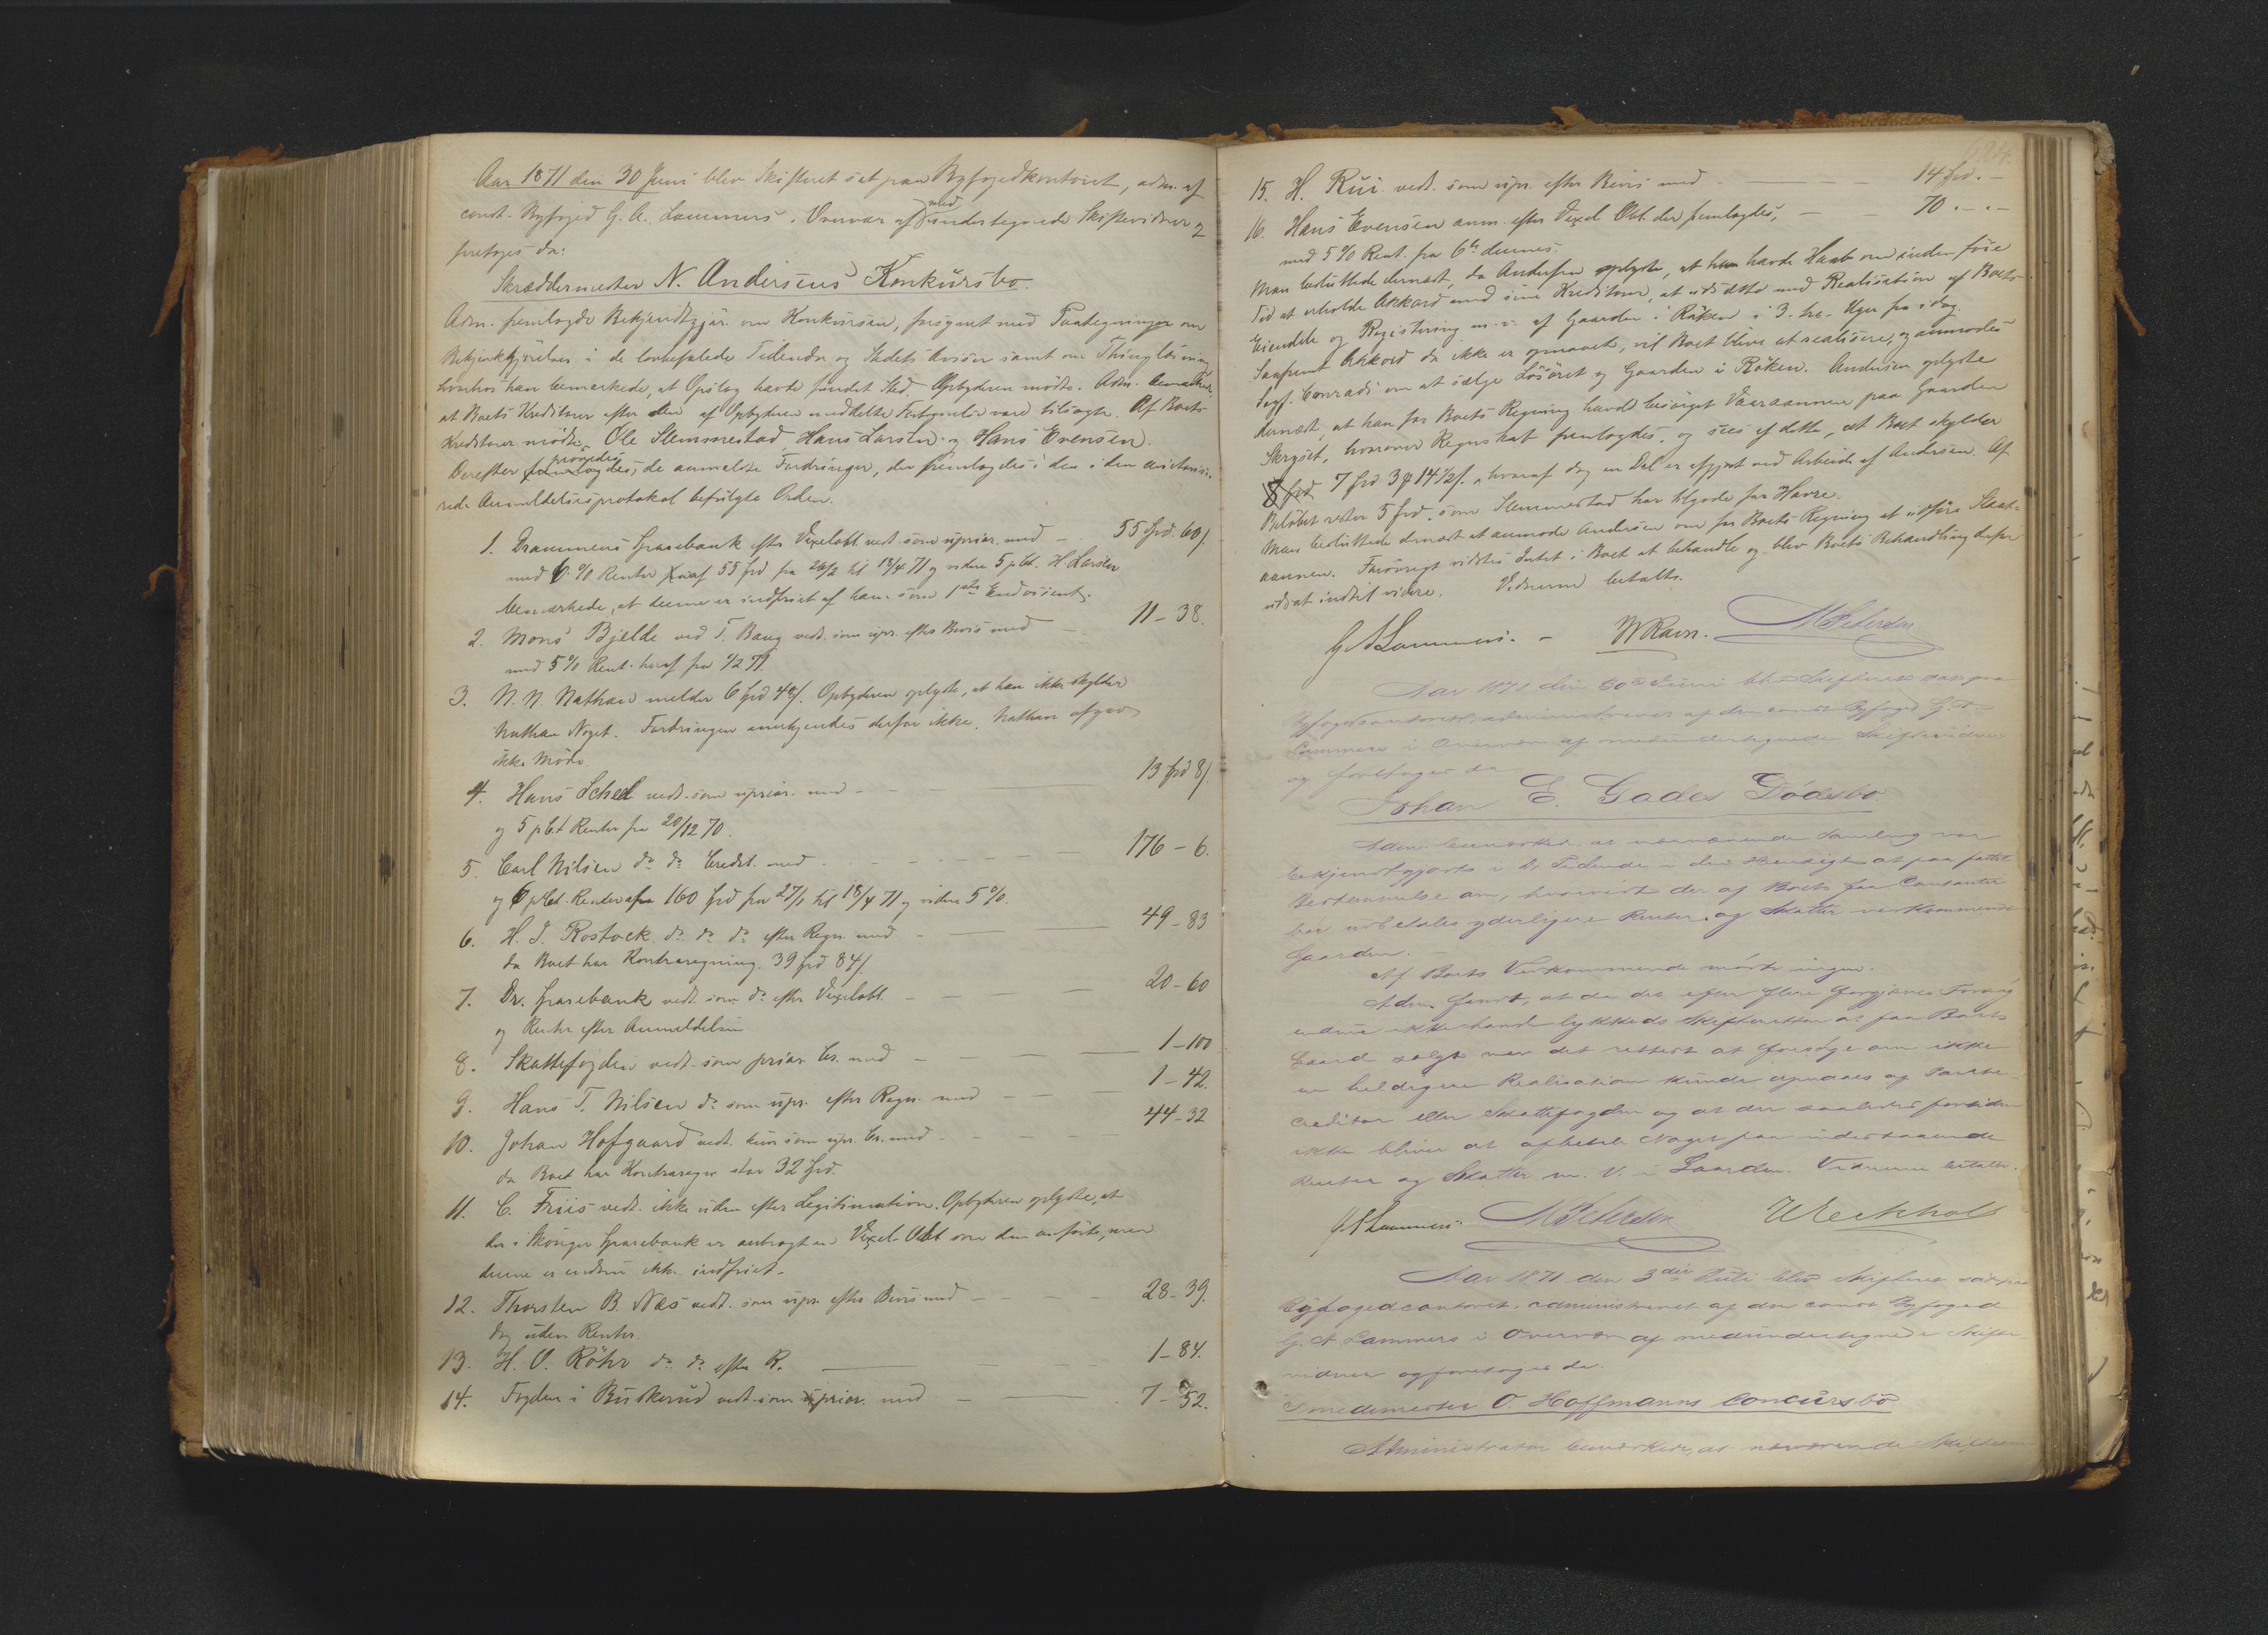 Aar 1871 den 30 Juni blev Skifteret sat paa Byfogedkontoret, adm. af
const. Byfoged G. A. Lammers i Overvær af med undertegnede Skiftevidner 2
foretoges da:
Skræddermester N. Andersens Konkursbo.
Adm. fremlagde Bekjendtgjør. om Konkursen, forsynet med Paategninger om
Bekjendtgjörelsen i de lovbefalede Tidender og Stedets Aviser samt om Thinglæsning
hvorhos han bemærkede, at Opslag havde fundet Sted. Opbyderen mödte. Adm. bemærkede,
at Boets Kreditorer efter den af Opbyderen meddelte Fortegnelse vare tilsagte. Af Boets
Kreditorer mödte Ole Slemmestad, Hans Larsen og Hans Evensen.
Derefter fremlagdes prövedes de anmeldte Fordringer, der fremlagdes i den i den autori-
serede Anmeldelsesprotokol befulgte Orden.
1. Drammens Sparebank efter Vexelobl. vedt. som uprior. med - 55 Spd. 60 s.
med 6 % Renter af 55 Spd fra 26/2 til 18/4 71 og videre 5 pCt. H. Larsen
bemærkede, at denne er indfriet af ham som 1ste Endossent.
2. Mons Bjelde ved T. Baug vedt. som upr. efter Bevis med - 11-38.
med 5 % Rent. heraf fra 1/2 71
3. N. N. Nathan melder 6 Spd 48 s. Opbyderen oplyste, at han ikke skylder
Nathan Noget. Fordringen anerkjendes derfor ikke. Nathan afgav
ikke Möde.
4. Hans Scheel vedt. som uprior. med - 13 Spd 8 s.
og 5 pCt Renter fra 20/12 70.
5. Carl Nilsen do do Credit. med - 176-6.
og 6 pCt. Renter af 160 Spd fra 27/1 til 18/4 71 og videre 5 %.
6. H. J. Rostock do do do efter Regn. med - 49-83
da Boet har Kontraregning 39 Spd 84 s.
7. Dr. Sparebank vedt. som do efter Vexelobl. - 20-60
og Renter efter Anmeldelsen
8. Skattefogden vedt. som prior. Cr. med - 1-100
9. Hans T. Nilsen do som upr. efter Regn. med - 1-42.
10. Johan Hofgaard vedt. kun som upr. Cr. med - 44-32
da Boet har Kontraregn. stor 32 Spd.
11. C. Friis vedt. ikke uden efter Legitimation. Opbyderen oplyste, at
der i Skouger Sparebank er anbragt en Vexel Obl. som den anförte, men
denne er endnu ikke indfriet.
12. Thorsten B. Næs vedt. som upr. efter Bevis med - 28-39.
dog uden Renter.
13. H. O. Röhr do do efter R. - 1-84.
14. Fogden i Buskerud vedt. som prior. med - 7-52.
15. H. Rui vedt. som upr. efter Bevis med - 14 Spd. -
16. Hans Evensen anm. efter Vexel Obl. der fremlagdes, - 70 . - . -
med 5 % Rent. fra 6te dennes.
Man besluttede dernæst, da Andersen oplyste, at han havde Haab om inden föie
Tid at erholde Akkord med sine Kreditorer, at udsætte med Realisation af Boets
Eiendele og Registrering m. v. af Gaarden i Röken i 3. tre Uger fra idag.
Saafremt Akkord da ikke er opnaaet, vil Boet blive at realisere, og anmodes
Sagf. Conradi om at sælge Lösöret og Gaarden i Röken. Andersen oplyste
dernæst, at han for Boets Regning havde besörget Vaaraannen paa Gaarden
Skryset, hvorover Regnskab fremlagdes, og sees af dette, at Boet skylder
8 Spd 7 Spd 3 ₰ 14 1/2 s., hvoraf dog en Del er afgjort ved Arbeide af Andersen. Af
Belöbet rester 5 Spd. som Slemmestad har tilgode for Havre.
Man besluttede dernæst at anmode Andersen om for Boets Regning at udföre Slaat-
aannen. Forövrigt vidstes Intet i Boet at behandle og blev Boets Behandling derfor
udsat indtil videre. Vidnerne betalte.
G A Lammers. - W Ravn. M Petersen
Aar 1871 den 30te Juni blev Skifteret sat paa
Byfogedcontoret, administreret af den const. Byfoged G. A.
Lammers i Overvær af medundertegnede Skiftevidner
og foretoges da
Johan E. Gades Dödsbo
Adm. bemærkede, at nærværende Samling var
bekjendtgjort i Dr. Tidende i den Hensigt at faa fattet
Bestemmelse om, hvorvidt der af Boets faa Contanter
bör udbetales yderligere Renter og Skatter vedkommende
Gaarden.
Af Boets Vedkommende mödte ingen.
Adm. fandt, at da det efter flere forgjæves Forsög
endnu ikke havde lykkedes Skifteretten at faa Boets
Gaard solgt var det rettest at forsöge om ikke
en heldigere Realisation kunde opnaaes af Pante-
creditor eller Skattefogden og at der saaledes fortiden
ikke bliver at afbetale Noget paa indestaaende
Renter og Skatter m. V. i Gaarden. Vidnerne betalte.
G A Lammers. M Petersen W Eckholt
Aar 1871 den 3die Juli blev Skifteret sat paa
Byfogedcontoret, administreret af den const. Byfoged
G. A Lammers i Overvær af medundertegnede Skifte
vidner og foretoges da.
Smedemester O. Hoffmanns Concursbo
Administrator bemærkede, at nærværende